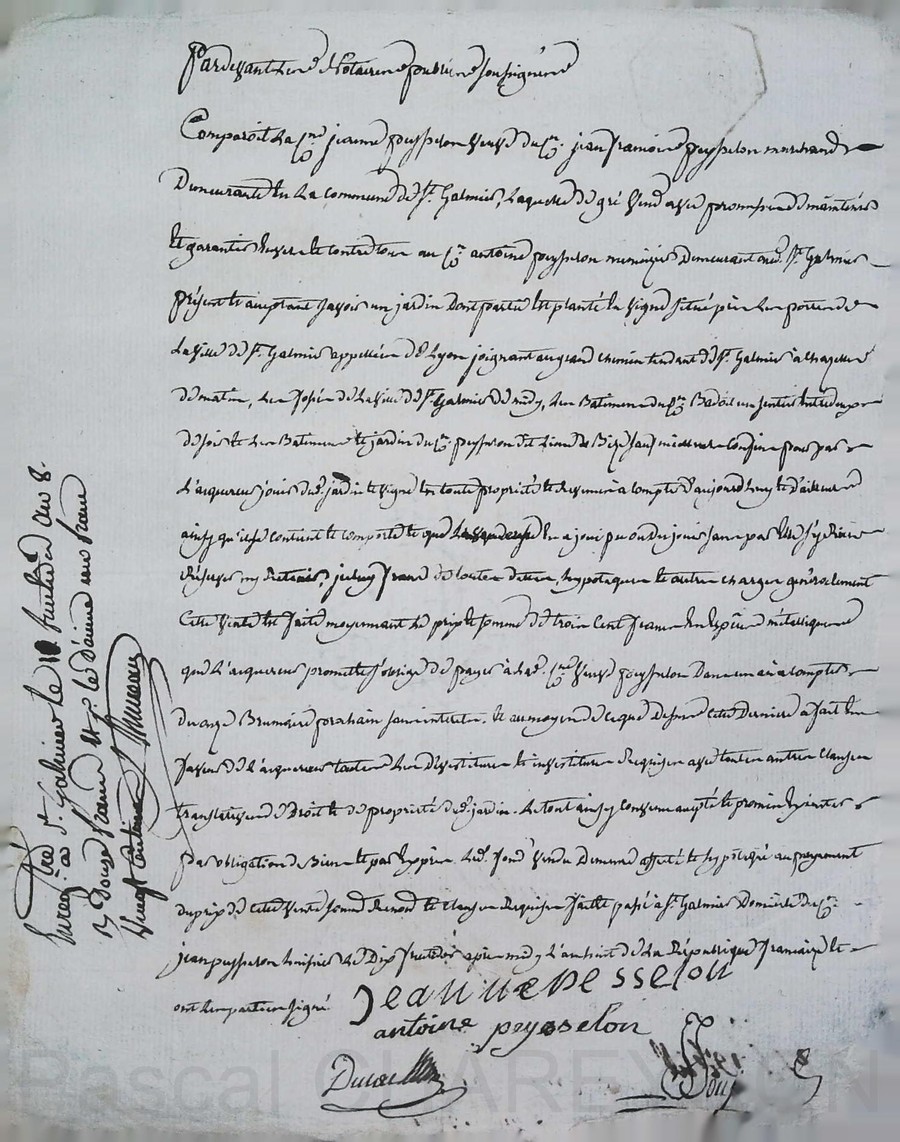 Pardevant les Notaires publics soussignés
Comparoit La Cne jeanne peysselon veuve du Cn jean françois peysselon marchand
Demeurante en La commune de St Galmier, Laquelle de gré vend avec promesse de maintenir
et garantir envers et contre tous au Cn antoine peysselon Demeurant aud. St Galmier
présent et acceptant savoir un jardin Dont partie est planté en vigne situé près les portes de
La ville de St Galmier appellées de Lyon joignant au grand chemin tendant de St Galmier à chazelles
de matin, Les fossés de La ville de St Galmier de midy, Les Batiments du Cn Badoil un sentier entredeux
de soir et Les Batiments et jardin du Cn peysselon dit de Bize sauf meilleurs confins pour par
L'acquereur jouir dud. jardin et vigne en toute propriété et revenus à compter d'aujourd'huy et d'ailleurs
ainsy qu'il se contient et comporte et que La venderesse en a joui pu ou du jouir sans par elle s'y Rien
Réserver ny Retenir, franc de toutes dettes, hypoteques et autres charges généralement
Cette vente est faite moyennant Le prix et somme de trois Cent francs en espèces métalliques
que L'acquereur promet et s'oblige de payer à lad. Cne veuve peysselon Dans un an à compter
du onze Brumaire prochain sans interets. et au moyen de ce que dessus cette Derniere a fait en
faveur de L'acquereur toutes Les Devestitures et investitures Requises avec toutes autres clauses
translatives de Droit et de propriété dud. jardin. Le tout ainsy convenu accepté et promis exécuter
par obligation de Biens et par exprès Led. fond vendu Demeure affecté et hypotéqué au payement
du prix de cette vente soumis Renoncé et clauses Requises fait et passé à St Galmier Domicile du Cn
jean peysselon Le Dix fructidor après midy L'an huit de La République française et
ont Les parties signé
Jeanne pesselon
antoine peysselon
Enregistré à St Galmier le fructidor an 8.
R douze francs et pr le Décime un franc
Vingt centimes
Pascal CHAREYRON